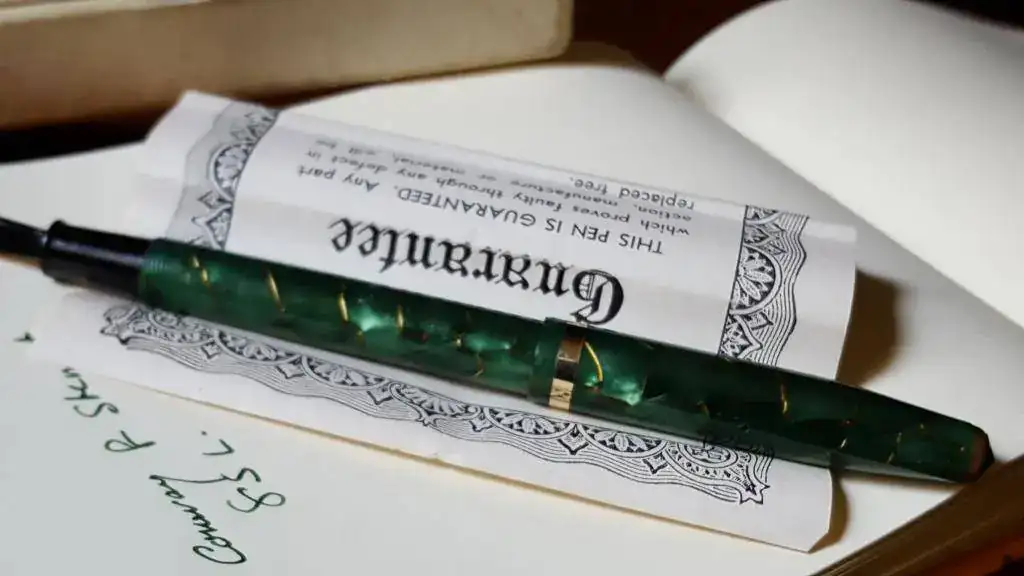 Guarantee
THIS PEN IS GUARANTEED. Any part
which proves faulty through any defect in
action, manufacture or material, will be
replaced free.
Conway
P.
& L.